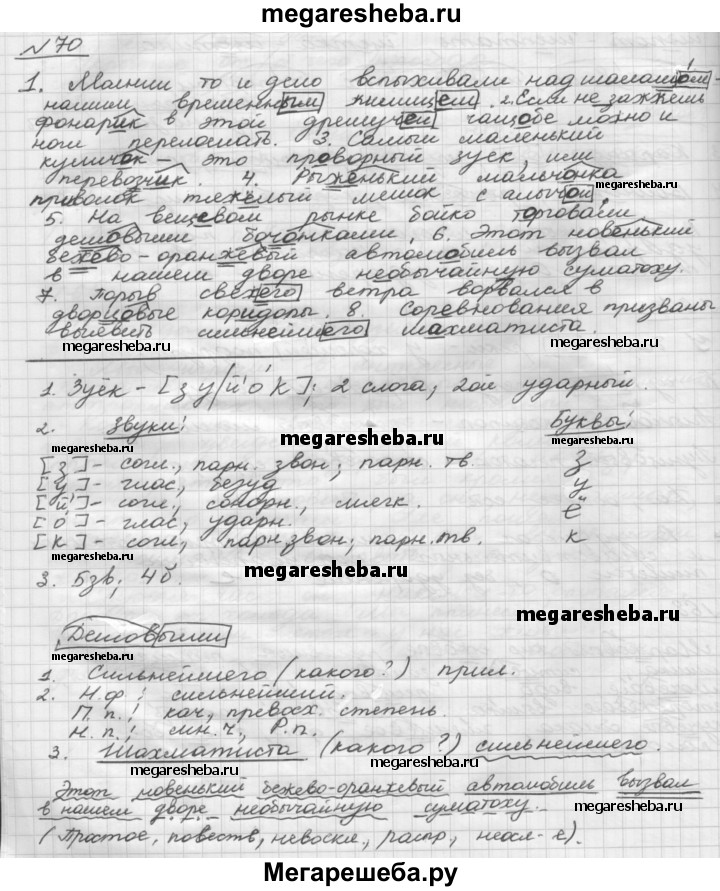 megaresheba.ru
N 70
1. Молнии то и дело вспыхивали над шалашом -
нашим временным жилищем. 2. Если не зажжешь
фонарик в этой дремучей чащобе можно и
ноги переломать. 3. Самый маленький
куличок – это проворный зуек, или
перевозчик. 4. Рыженький мальчонка
megaresheba.ru
приволок тяжелый мешок с алычой.
5. На вещевом рынке бойко торговали
дешовыми бочонками, 6. Этот новенький
бежево-оранжевый автомобиль вызвал
в нашем дворе необычайную суматоху.
7. Порыв свежего ветра ворвался в
дворцовые коридоры. 8. Соревнования призваны
выявить сильнейшего шахматиста.
megaresheba.ru
megaresheba.ru
1. Зуёк – [з у/й' о́ к]; 2 слога, 2ой ударный.
2. Звуки: Буквы:
megaresheba.ru
megaresheba.ru
megaresheba.ru
[з] - согл., парн. звон; парн. тв. з
[у] - глас, безуд у
[й'] - согл, сонорн., мягк. ё
[о́] - глас, ударн.
[к] - согл, парн звон; парн. тв. к
3. 5зв; 4б.
megaresheba.ru
megaresheba.ru
Дешовыми
megaresheba.ru
1. Сильнейшего (какого?) прил.
2. Н.ф: сильнейший.
П.п.: кач, превосх. степень.
Н.п.: мн.ч, Р.п.
3. Шахматиста (какого?) сильнейшего.
megaresheba.ru
megaresheba.ru
Этот новенький бежево-оранжевый автомобиль вызвал
в нашем дворе необычайную суматоху.
megaresheba.ru
(Простое, повеств, невоскл, распр, неосл-е).
megaresheba.ru
Мегарешеба.ру